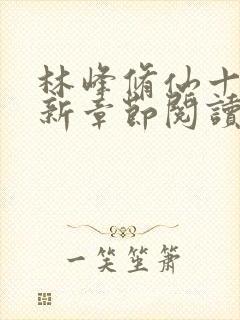 林峰脩仙十
新章節閱讀
一笑笙簫